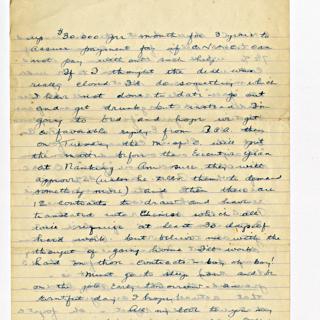 up $30.000 per month for 3 years to
assure payment for if C.N.A.C. can
not pay without such help.
If I thought the deal was
really closed I'd do something which
I have not done to date - go out
and get drunk but instead I'm
going to bed and hope we get
a favorable reply from then
on Tuesday the will put
the matter before the Executive Yuan
at Nanking. Am sure they will
approve (unless he tells them to demand
something more) and then there are
12 contracts to draw and have
translated into Chinese which will
require at least 30 days of
hard work but believe me with the
thought of going home I'll work
hard on those contracts - boy oh boy!
Must go to sleep now and be
on the job early tomorrow - an
day I hope.
All my love to you